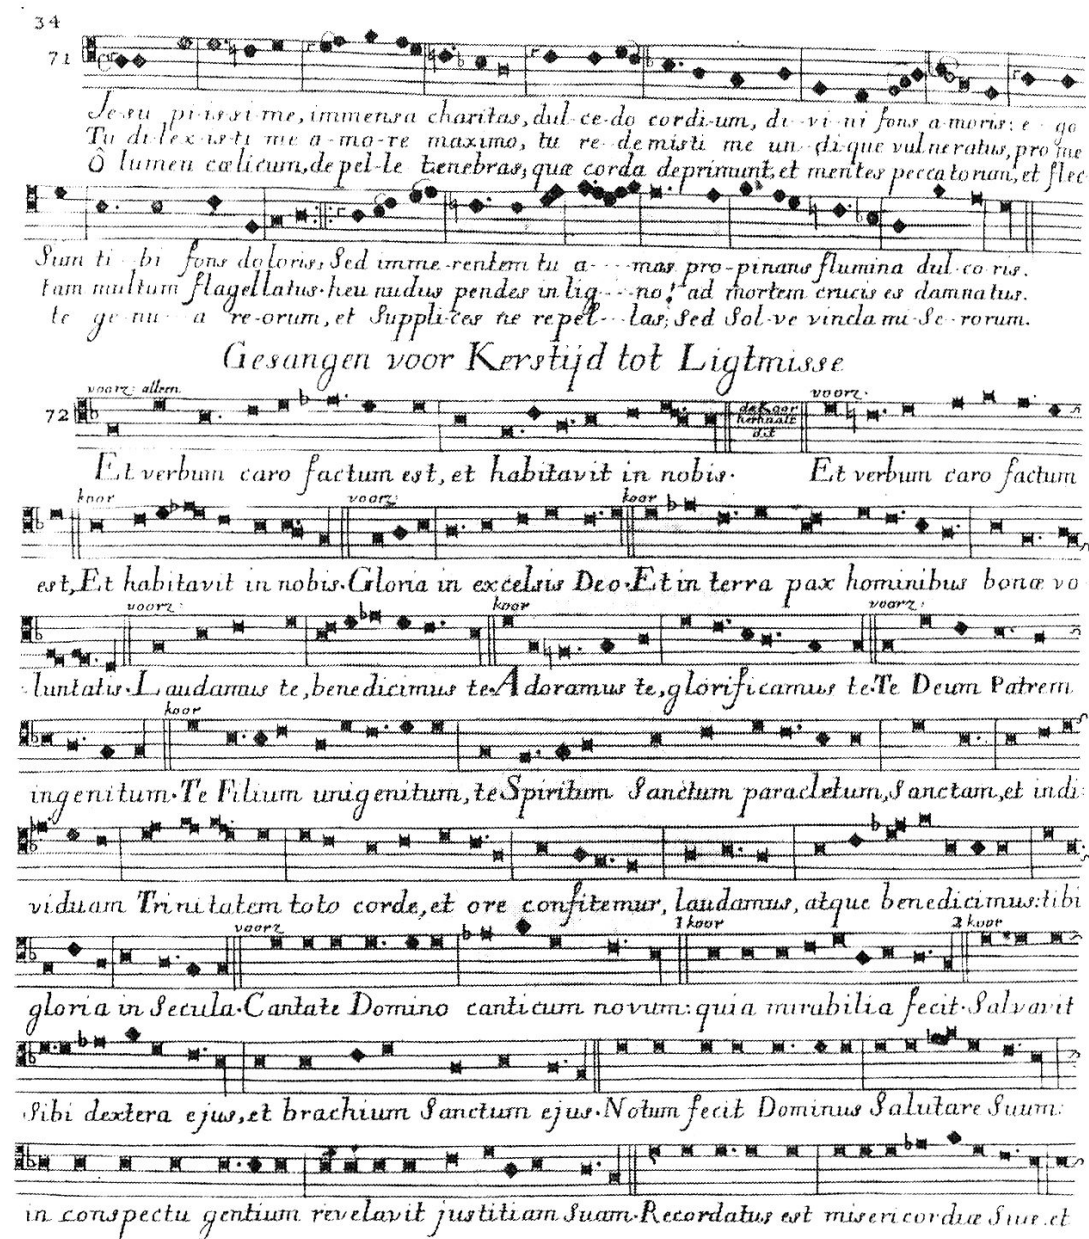 34
71
Je-su pi-is-si-me, immensa charitas, dul-ce-do cordi-um, di-vi-ni fons a-moris: e-go
Tu di-lex-is-ti me a-mo-re maximo, tu re-demisti me un-di-que vulneratus, pro me
Ô lumen cælicum, de pel-le tenebras, quæ corda deprimunt, et mentes peccatorum, et flec-
Sum ti-bi fons doloris, Sed imme-rentem tu a---mas pro-pinans flumina dul-co-ris.
tam multum flagellatus. heu nudus pendes in lig---no! ad mortem crucis es damnatus.
te ge-nu-a re-orum, et Supplices ne repel--las; Sed Sol-ve vincla mi-Se-rorum.
Gesangen voor Kerstijd tot Ligtmisse
voorz: alleen
voorz:
72
de Koor
herhaalt
dit
Et verbum caro factum est, et habitavit in nobis. Et verbum caro factum
koor voorz: koor
est, Et habitavit in nobis. Gloria in excelsis Deo. Et in terra pax hominibus bonæ vo
voorz: koor voorz:
luntatis. Laudamus te, benedicimus te. Adoramus te, glorificamus te. Te Deum Patrem
koor
ingenitum. Te Filium unigenitum, te Spiritum Sanctum paracletum, Sanctam, et indi:
viduam Trinitatem toto corde, et ore confitemur, laudamus, atque benedicimus: tibi
voorz 1 koor 2 koor
gloria in Secula. Cantate Domino canticum novum: quia mirabilia fecit. Salvavit
Sibi dextera ejus, et brachium Sanctum ejus. Notum fecit Dominus Salutare Suum:
in conspectu gentium revelavit justitiam Suam. Recordatus est misericordiæ Suæ, et